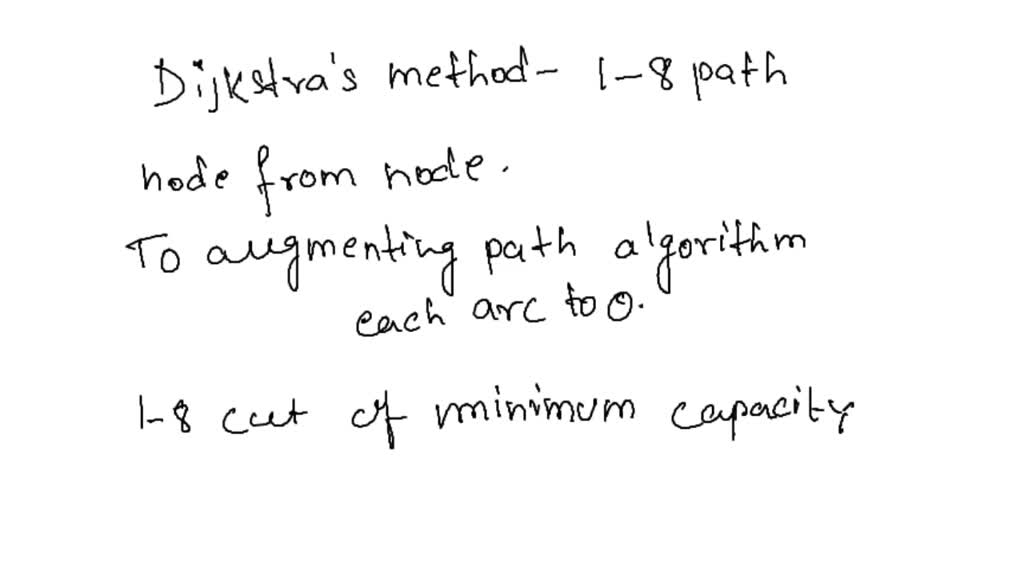 Dijkstra's method - 1-8 path
node from node.
To augmenting path algorithm
each arc to 0.
1-8 cut of minimum capacity